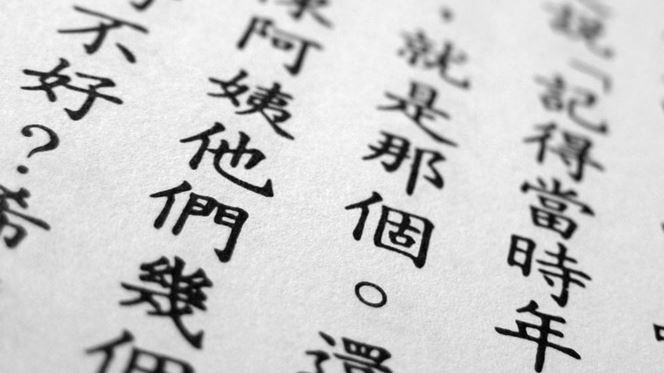 說「記得當時年
，就是那個。還
陳阿姨他們幾個
不好？希